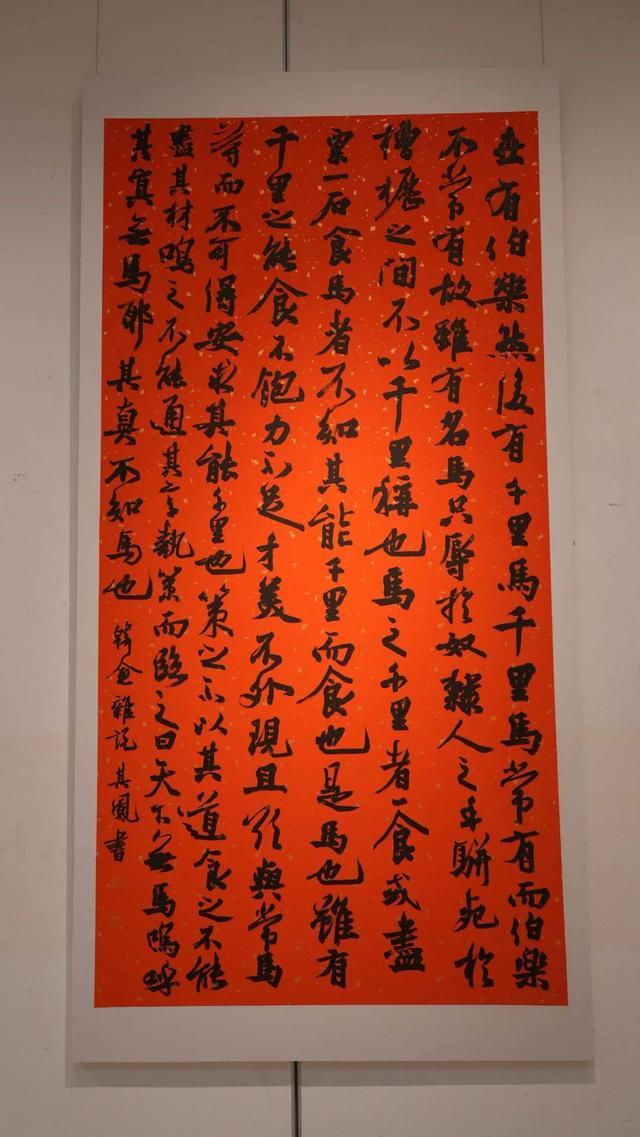 世有伯樂然後有千里馬千里馬常有而伯樂
不常有故雖有名馬只辱於奴隸人之手駢死於
槽櫪之間不以千里稱也馬之千里者一食或盡
粟一石食馬者不知其能千里而食也是馬也雖有
千里之能食不飽力不足才美不外現且欲與常馬
等而不可得安求其能千里也策之不以其道食之不能
盡其材鳴之不能通其意執策而臨之曰天下無馬嗚呼
其真無馬耶其真不知馬也 韓愈雜說 其鳳書